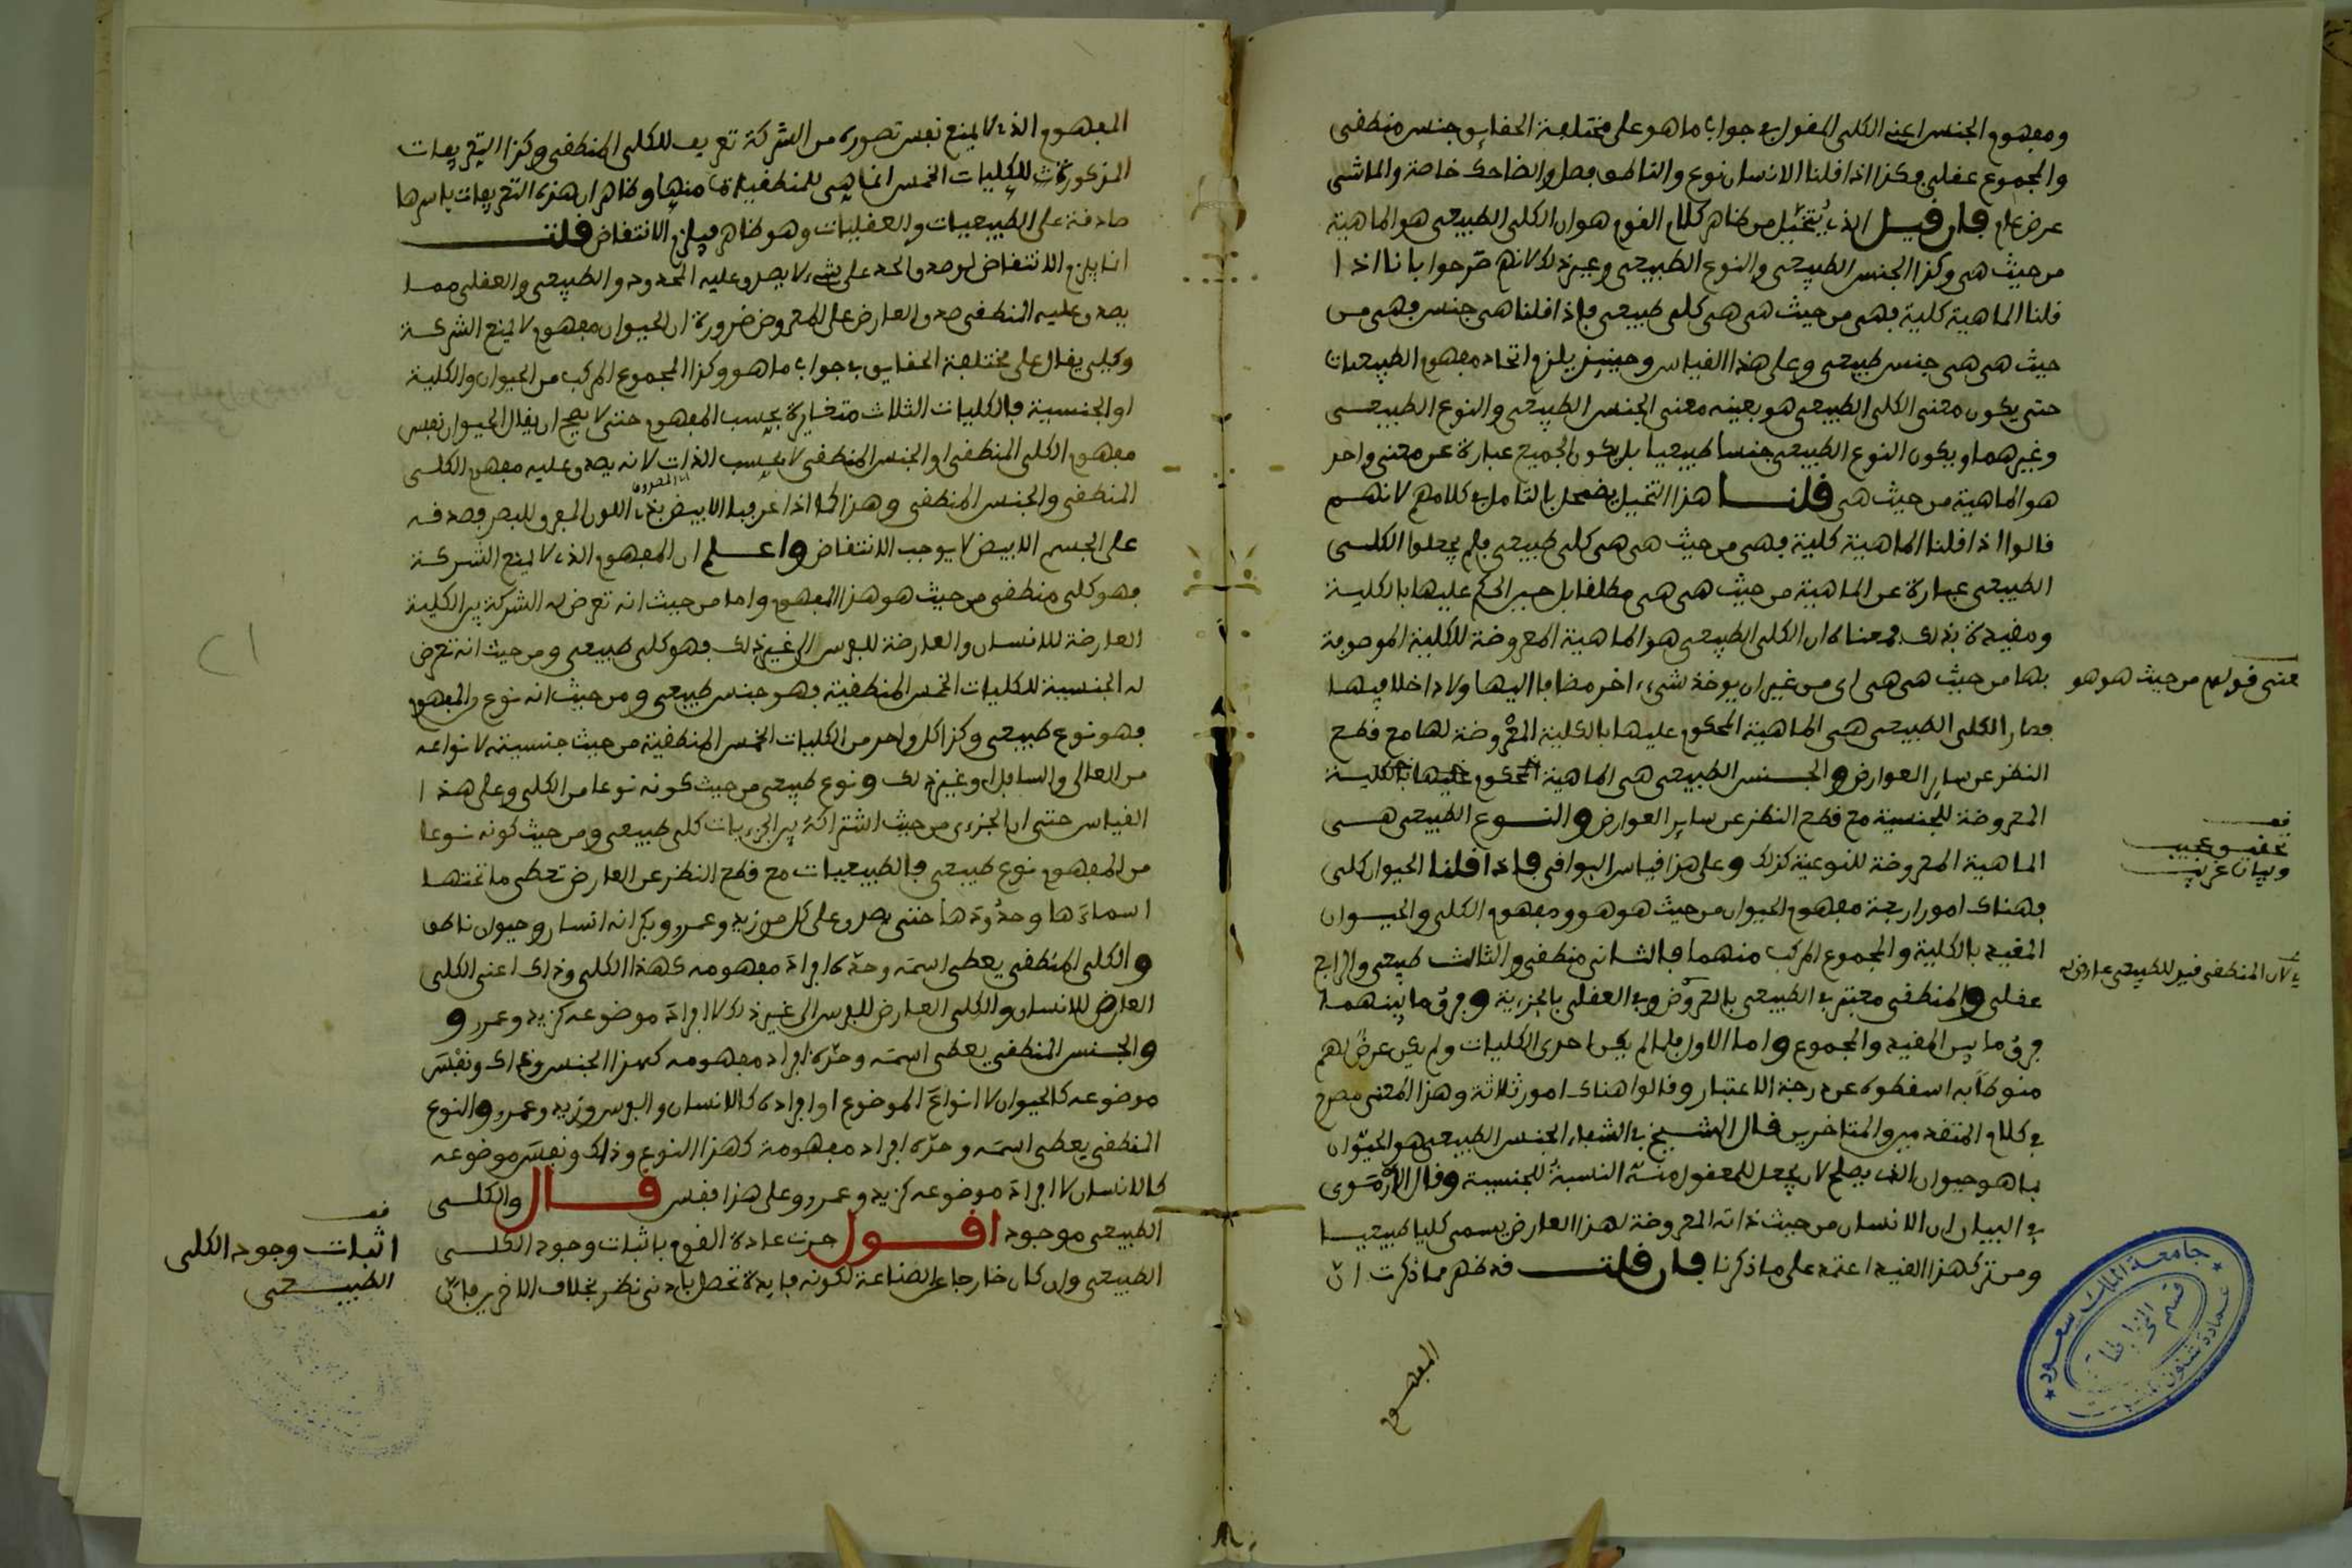 ومفهوم الجنس اعني الكلي المقول في جواب ما هو على مختلفة الحقايق جنس منطقي
والمجموع عقلي وكذا اذا قلنا الانسان نوع والناطق فصل والضاحك خاصة والماشي
عرض عام فان قيل الذي يتخيل من ظاهر كلام القوم هو ان الكلي الطبيعي هو الماهية
من حيث هي وكذا الجنس الطبيعي والنوع الطبيعي وغير ذلك لانهم صرحوا بانا اذا
قلنا الماهية كلية فهي من حيث هي هي كلي طبيعي واذا قلنا هي جنس فهي من
حيث هي هي جنس طبيعي وعلى هذا القياس وحينئذ يلزم اتحاد مفهوم الطبيعيات
حتى يكون معنى الكلي الطبيعي هو بعينه معنى الجنس الطبيعي والنوع الطبيعي
وغيرهما ويكون النوع الطبيعي جنسا طبيعيا بل يكون الجميع عبارة عن معنى واحد
هو الماهية من حيث هي قلنا هذا التخيل يضمحل بالتامل في كلامهم لانهم
قالوا اذا قلنا الماهية كلية فهي من حيث هي هي كلي طبيعي فلم يجعلوا الكلي
الطبيعي عبارة عن الماهية من حيث هي هي مطلقا بل حين الحكم عليها بالكلية
ومقيدة بذلك فمعناه ان الكلي الطبيعي هو الماهية المعروضة للكلية الموصوفة
بها من حيث هي هي اي من غير ان يوخذ شيء اخر مضافا اليها ولا داخلا فيها
معنى قولهم من حيث هو هو
فصار الكلي الطبيعي هي الماهية المحكوم عليها بالكلية المعروضة لها مع قطع
النظر عن ساير العوارض والجنس الطبيعي هي الماهية المحكوم عليها بالكلية
المعروضة للجنسية مع قطع النظر عن ساير العوارض والنوع الطبيعي هي
قف
تحقيق عجيب
وبيان غريب
الماهية المعروضة للنوعية كذلك وعلى هذا قياس البواقي فاذا قلنا الحيوان كلي
فهناك امور اربعة مفهوم الحيوان من حيث هو هو ومفهوم الكلي والحيوان
المقيد بالكلية والمجموع المركب منهما فالثاني منطقي والثالث طبيعي والرابع
لان المنطقي قيد للطبيعي عارض له
عقلي والمنطقي معتبر في الطبيعي بالعروض وفي العقلي بالجزئية وفرق ما بينهما
فرق ما بين المقيد والمجموع واما الاول فلما لم يكن احدى الكليات ولم يكن غرضهم
منوطا به اسقطوه عن درجة الاعتبار وقالوا هناك امور ثلاثة وهذا المعنى مصرح
في كلام المتقدمين والمتاخرين قال الشيخ في الشفاء الجنس الطبيعي هو الحيوان
بما هو حيوان الذي يصلح لان يجعل للمعقول منه النسبة للجنسية وقال الارموي
في البيان ان الانسان من حيث ذاته المعروضة لهذا العارض يسمى كليا طبيعيا
ومن ترك هذا القيد اعتمد على ما ذكرنا فان قلت قد ظهر مما ذكرت ان
المفهوم
جامعة الملك سعود
عمادة شئون المكتبات
قسم المخطوطات
المفهوم الذي لا يمنع نفس تصوره من الشركة تعريف للكلي المنطقي وكذا التعريفات
المذكورة للكليات الخمس انما هي للمنطقيات منها وظاهر ان هذه التعريفات باسرها
صادقة على الطبيعيات والعقليات وهو ظاهر فيلزم الانتقاض قلت
انما يلزم الانتقاض لو صدق الحد على شيء لا يصدق عليه المحدود والطبيعي والعقلي مما
يصدق عليه المنطقي صدق العارض على المعروض ضرورة ان الحيوان مفهوم لا يمنع الشركة
وكلي يقال على مختلفة الحقايق في جواب ما هو وكذا المجموع المركب من الحيوان والكلية
او الجنسية فالكليات الثلاث متغايرة بحسب المفهوم حتى لا يصح ان يقال الحيوان نفس
مفهوم الكلي المنطقي او الجنس المنطقي لا بحسب الذات لانه يصدق عليه مفهوم الكلي
المنطقي والجنس المنطقي وهذا كما اذا عرفنا الابيض بذي اللون المفرق للبصر فصدقه
على الجسم الابيض لا يوجب الانتقاض واعلم ان المفهوم الذي لا يمنع الشركة
فهو كلي منطقي من حيث هو هذا المفهوم واما من حيث انه تعرض له الشركة بين الكلية
العارضة للانسان والعارضة للفرس الى غير ذلك فهو كلي طبيعي ومن حيث انه تعرض
له الجنسية للكليات الخمس المنطقية فهو جنس طبيعي ومن حيث انه نوع المفهوم
فهو نوع طبيعي وكذا كل واحد من الكليات الخمس المنطقية من حيث جنسيته لانواعه
من العالي والسافل وغير ذلك ونوع طبيعي من حيث كونه نوعا من الكلي وعلى هذا
القياس حتى ان الجزءي من حيث اشتراكه بين الجزءيات كلي طبيعي ومن حيث كونه نوعا
من المفهوم نوع طبيعي فالطبيعيات مع قطع النظر عن العارض تعطي ما تحتها
اسماءها وحدودها حتى يصدق على كل من زيد وعمرو وبكر انه انسان وحيوان ناطق
والكلي المنطقي يعطي اسمه وحده افراد مفهومه كهذا الكلي وذاك اعني الكلي
العارض للانسان والكلي العارض للفرس الى غير ذلك لا افراد موضوعه كزيد وعمرو
والجنس المنطقي يعطي اسمه وحده افراد مفهومه كهذا الجنس وذاك ونفس
موضوعه كالحيوان لا انواع الموضوع او افراده كالانسان والفرس وزيد وعمرو والنوع
المنطقي يعطي اسمه وحده افراد مفهومه كهذا النوع وذاك ونفس موضوعه
كالانسان لا افراد موضوعه كزيد وعمرو وعلى هذا فقس قال والكلي
الطبيعي موجود اقول جرت عادة القوم باثبات وجود الكلي
قف
اثبات وجود الكلي
الطبيعي
الطبيعي وان كان خارجا عن الصناعة لكونه فايدة تحصل بادنى نظر بخلاف الاخرين فان